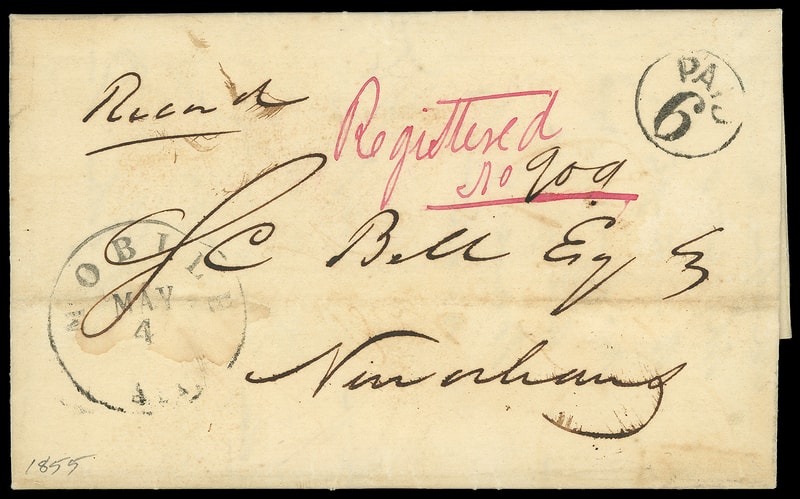 Record
Registered
No 909
PAID
6
MOBILE
MAY
4
ALA
S C Bell Esq
New orleans
1855